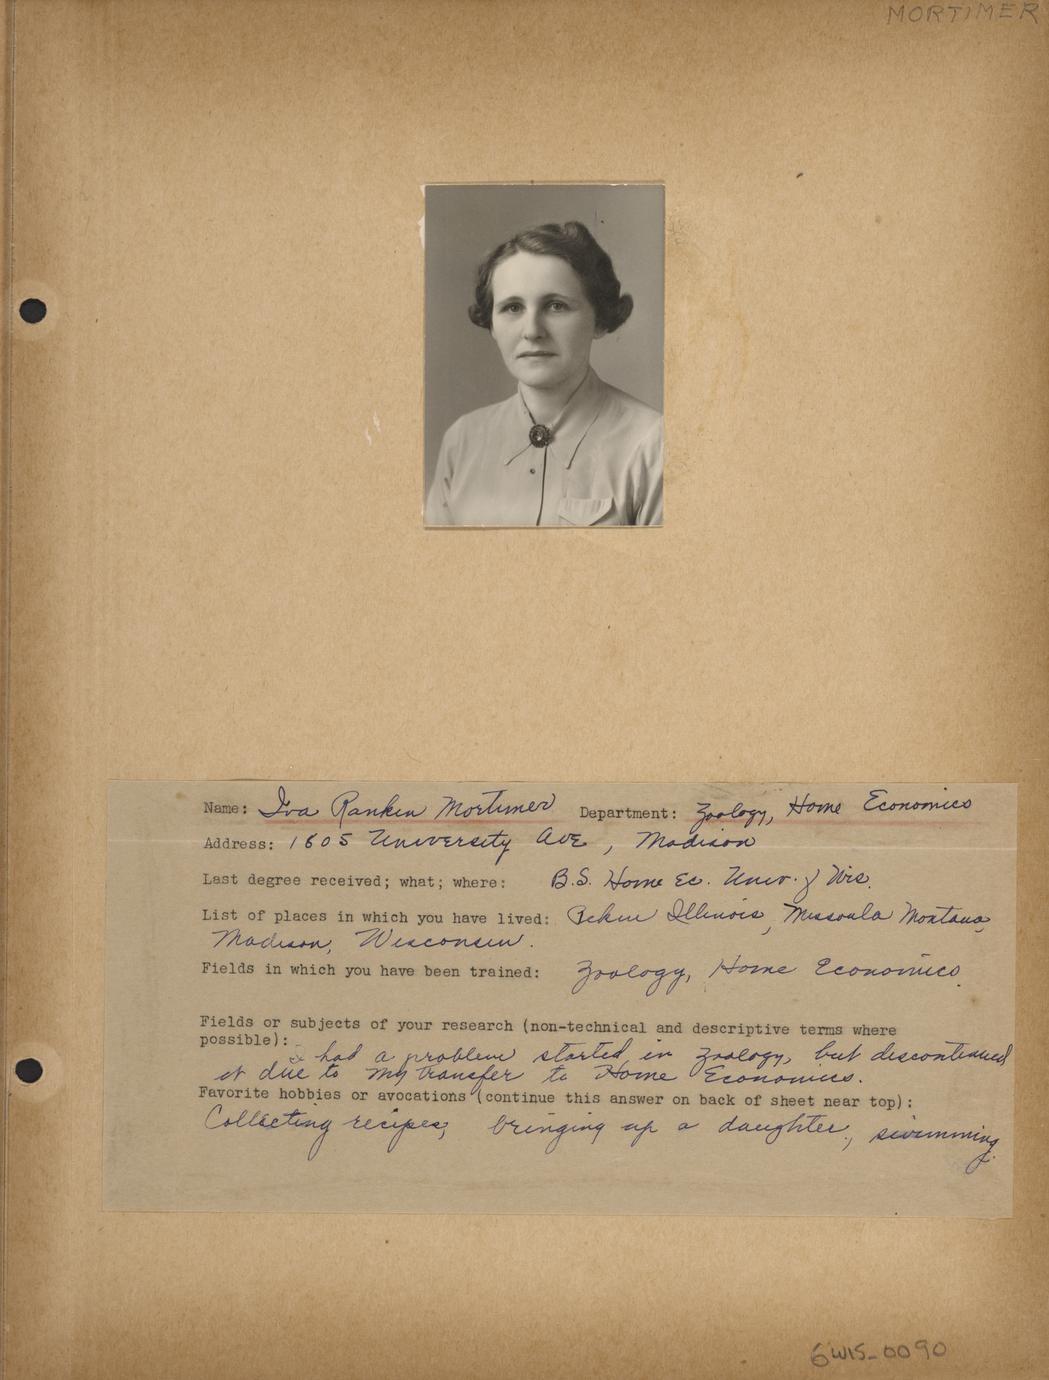 MORTIMER
Name: Iva Rankin Mortimer Department: Zoology, Home Economics
Address: 1605 University Ave, Madison
Last degree received; what; where: B.S. Home Ec. Univ. of Wis.
List of places in which you have lived: Pekin Illinois, Missoula Montana,
Madison, Wisconsin.
Fields in which you have been trained: Zoology, Home Economics.
Fields or subjects of your research (non-technical and descriptive terms where
possible):
I had a problem started in Zoology, but discontinued
it due to my transfer to Home Economics.
Favorite hobbies or avocations (continue this answer on back of sheet near top):
Collecting recipes, bringing up a daughter, swimming.
6WIS-0090